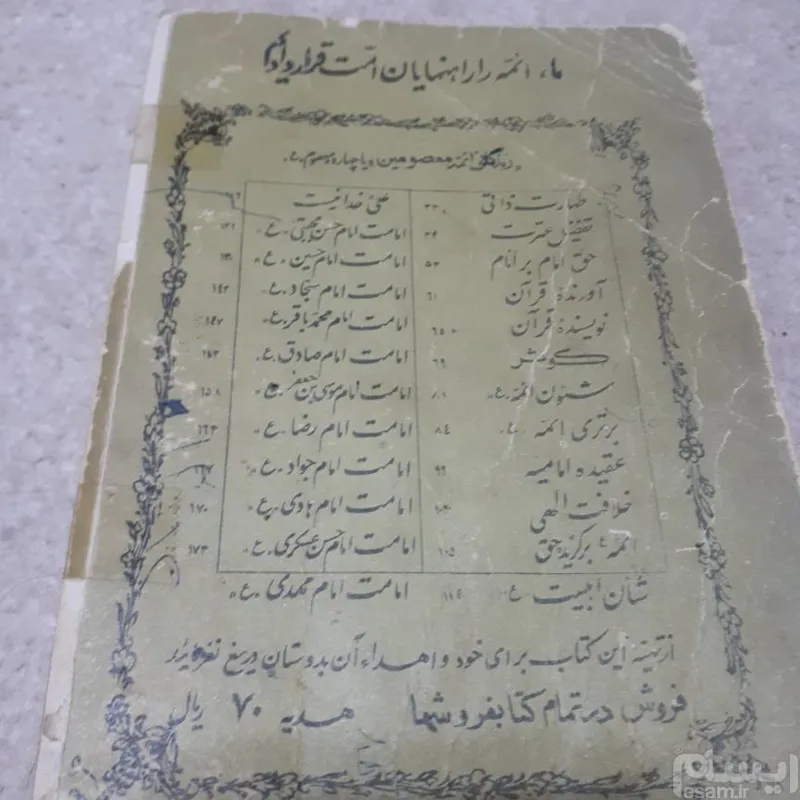 ما، ائمه را راهنمایان امت قرار دادیم
زندگی ائمه معصومین و یا چهارده معصوم ع
طهارت ذاتی ۲۳ علی خدا نیست
تفضیل عترت ۳۴ امامت امام حسن مجتبی ع ۱۲۱
حق امام بر انام ۵۳ امامت امام حسین ع
آورنده قرآن ۶۱ امامت امام سجاد ع ۱۴۲
نویسنده قرآن ۶۵ امامت امام محمد باقر ع ۱۴۷
۶۹ امامت امام صادق ع ۱۵۳
شئون ائمه ع ۸۱ امامت امام موسی بن جعفر ع ۱۵۸
برتری ائمه ع ۸۴ امامت امام رضا ع ۱۶۳
عقیده امامیه ۹۹ امامت امام جواد ع ۱۶۷
خلافت الهی ۱۰۳ امامت امام هادی ع ۱۷۰
ائمه ع برگزیده حق ۱۰۵ امامت امام حسن عسکری ع ۱۷۳
شأن اهلبیت ع ۱۱۴ امامت امام مهدی ع
از تهیه این کتاب برای خود و اهداء آن بدوستان دریغ نفرمائید
فروش در تمام کتابفروشیها هدیه ۷۰ ریال
ایسام
esam.ir